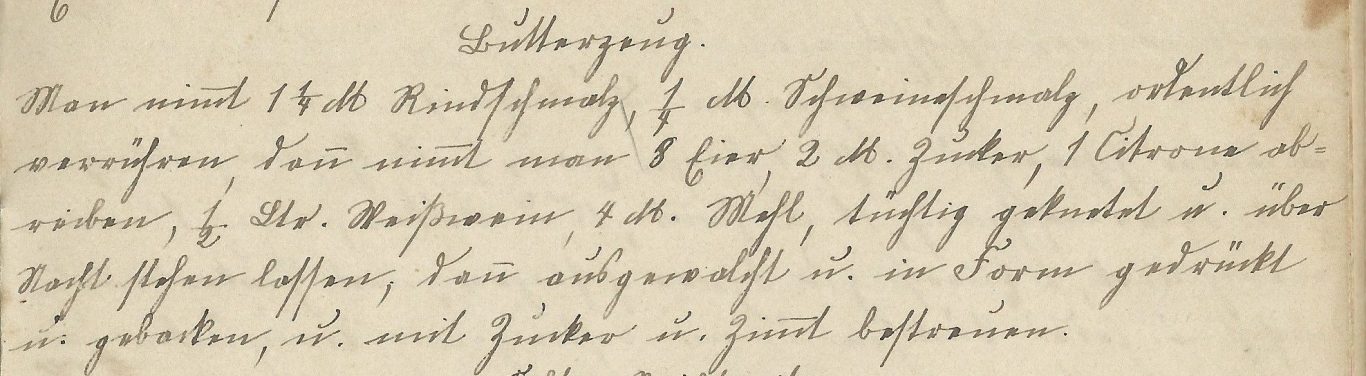 Butterzeug.
Man nimt 1 1/4 ℔ Rindschmalz, 1/4 ℔. Schweineschmalz, ordentlich
verrühren, dan̄ nim̄t man 8 Eier, 2 ℔. Zucker, 1 Citrone ab=
reiben, 1/2 Ltr. Weißwein, 4 ℔. Mehl, tüchtig geknetet u. über
Nacht stehen lassen, dan̄ ausgewalcht u. in Form gedrückt
u. gebacken, u. mit Zucker u. Zim̄t bestreuen.